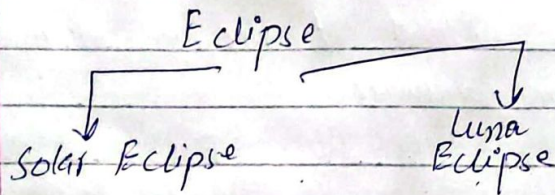 Eclipse
Solar Eclipse
Luna
Eclipse